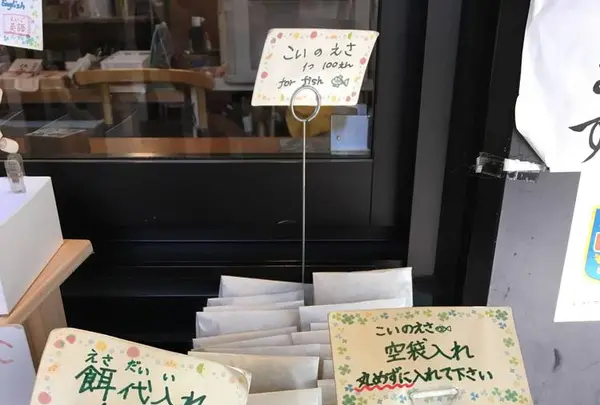 English
こいのえさ
1つ 100えん
for fish
こいのえさ
空袋入れ
丸めずに入れて下さい
えさだいい
餌代入れ
す